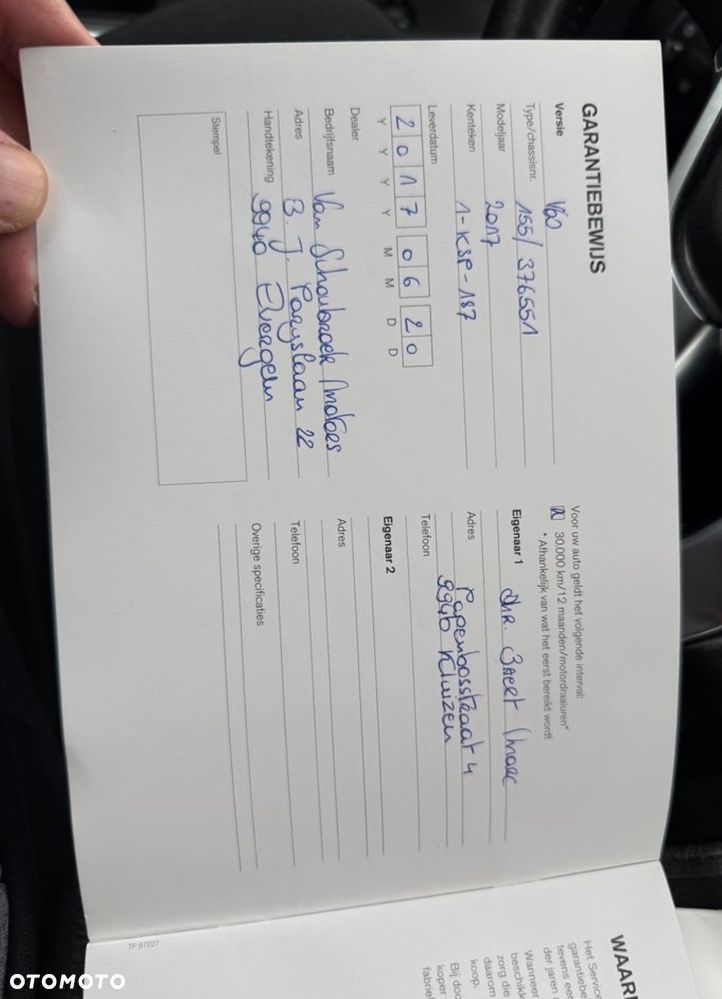 GARANTIEBEWIJS
Versie V60
Type/chassisnr. 155/376551
Modeljaar 2017
Kenteken 1-KSP-187
Leverdatum
2017 06 20
Y Y Y Y M M D D
Dealer
Bedrijfsnaam Van Schoubroek Motors
Adres B. J. Paryslaan 22
Handtekening 9940 Evergem
Stempel
Voor uw auto geldt het volgende interval:
30.000 km/12 maanden/motordraaiuren*
* Afhankelijk van wat het eerst bereikt wordt
Eigenaar 1 Dhr. Baert Marc
Adres Papenbosstraat 4
9940 Kluizen
Telefoon
Eigenaar 2
Adres
Telefoon
Overige specificaties
TP 87627
Het
garantiebe
tevens ee
der jaren
Wanneer
beschikk
zorg die
daarom
koop.
Bij doo
koper
fabrie
OTOMOTO